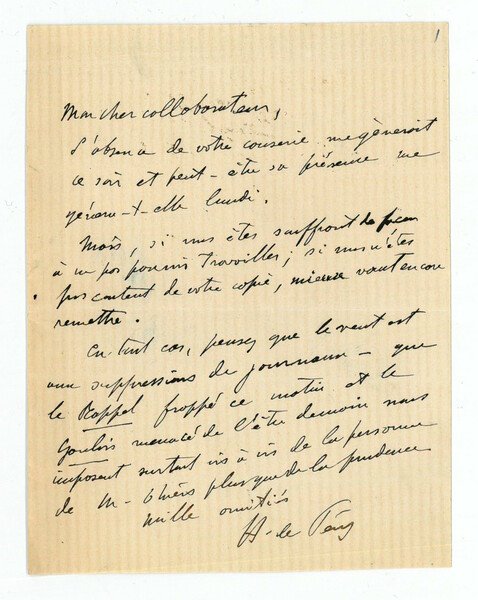 1
Mon cher collaborateur,
L'absence de votre causerie me gênerait
ce soir et peut-être sa présence me
gênera-t-elle lundi.
Mais, si vous êtes souffrant de façon
à ne pas pouvoir travailler; si vous n'êtes
pas content de votre copie, mieux vaut encore
remettre.
En tout cas, pensez que le vent est
aux suppressions de journaux - que
le Rappel frappé ce matin et le
Gaulois menacé de l'être demain nous
imposent surtout vis à vis de la personne
de M. Thiers plus que de la prudence
mille amitiés
H. de Pène